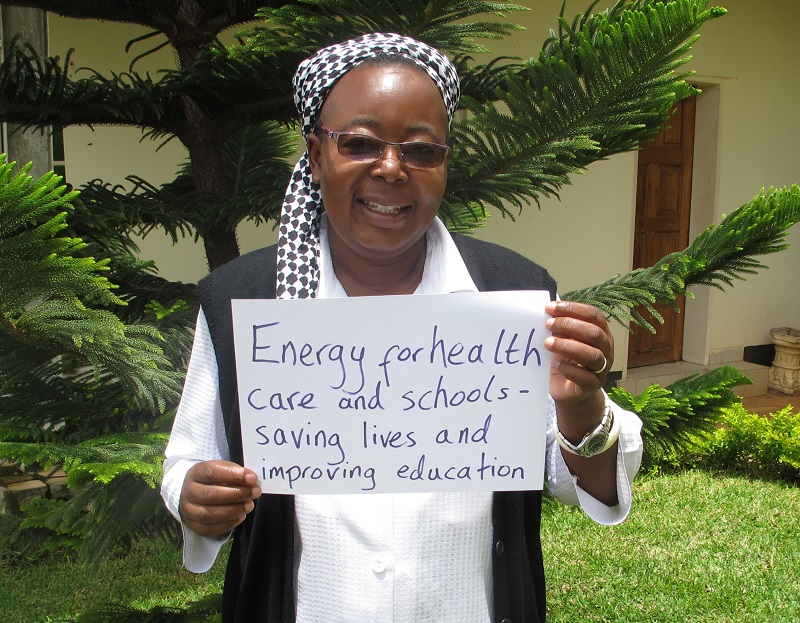 Energy for health
care and schools -
saving lives and
improving education